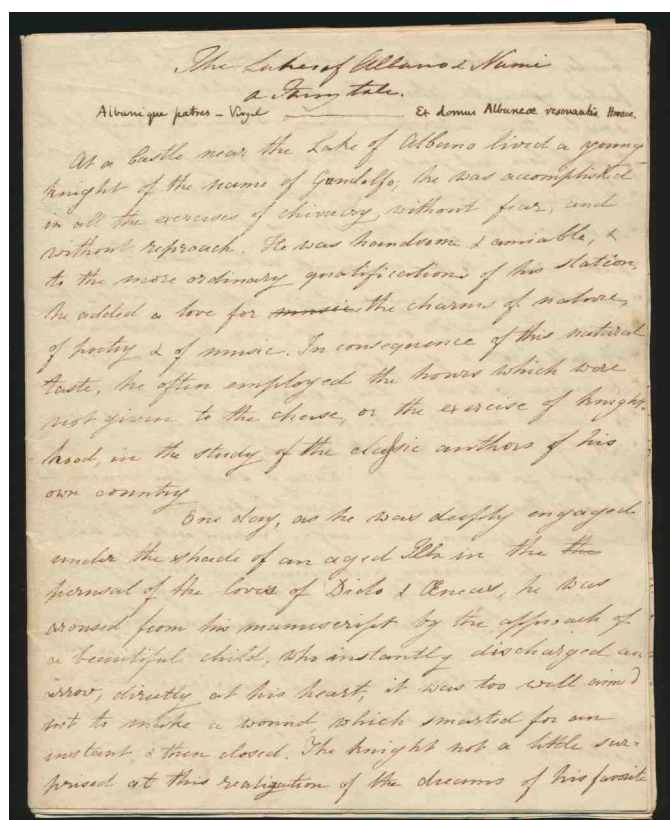 The Lakes of Albano & Nemi
a Fairy tale.
Albanique patres – Virgil ——— Et domus Albuneæ resonantis. Horace.
At a Castle near the Lake of Albano lived a young
knight of the name of Gandolfo; he was accomplished
in all the exercises of chivalry, without fear, and
without reproach. He was handsome & amiable, &
to the more ordinary qualifications of his station,
he added a love for music the charms of nature,
of poetry & of music. In consequence of this natural
taste, he often employed the hours which were
not given to the chase, or the exercise of knight-
hood, in the study of the classic authors of his
own country
One day, as he was deeply engaged
under the shade of an aged Ilex in the the
perusal of the loves of Dido & Æneas, he was
aroused from his manuscript by the approach of
a beautiful child, who instantly discharged an
arrow, directly at his heart, it was too well aim'd
not to make a wound, which smarted for an
instant, & then closed. The knight not a little sur=
prised at this realization of the dreams of his favorite